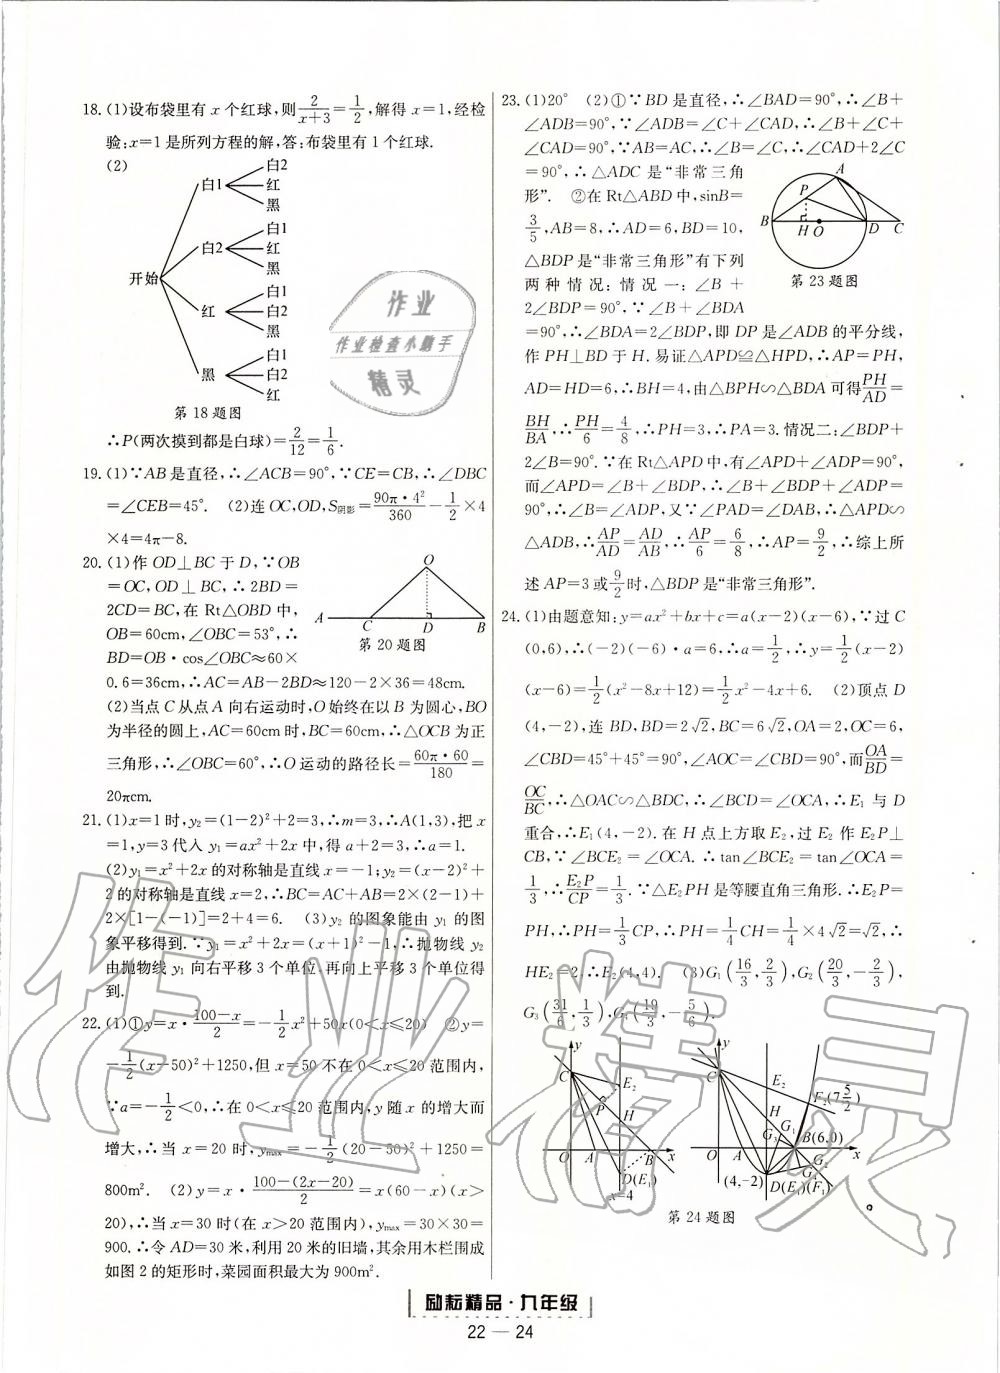 18. (1)设布袋里有 x 个红球,则2/(x+3)=1/2,解得 x=1,经检
验:x=1是所列方程的解,答:布袋里有1个红球.
(2)
开始
白1
白2
红
黑
白2
白1
红
黑
红
白1
白2
黑
黑
白1
白2
红
第18题图
∴P(两次摸到都是白球)=2/12=1/6.
19. (1)∵AB是直径,∴∠ACB=90°,∵CE=CB,∴∠DBC
=∠CEB=45°. (2)连OC,OD,S阴影=90π·4²/360-1/2×4
×4=4π-8.
20. (1)作 OD⊥BC 于 D,∵OB
=OC,OD⊥BC,∴2BD=
2CD=BC,在 Rt△OBD 中,
OB=60cm,∠OBC=53°,∴
BD=OB·cos∠OBC≈60×
0.6=36cm,∴AC=AB-2BD≈120-2×36=48cm.
O
A C D B
第20题图
(2)当点C从点A向右运动时,O始终在以B为圆心,BO
为半径的圆上,AC=60cm时,BC=60cm,∴△OCB为正
三角形,∴∠OBC=60°,∴O运动的路径长=60π·60/180=
20πcm.
21. (1)x=1时,y₂=(1-2)²+2=3,∴m=3,∴A(1,3),把x
=1,y=3代入y₁=ax²+2x中,得a+2=3,∴a=1.
(2)y₁=x²+2x的对称轴是直线x=-1;y₂=(x-2)²+
2的对称轴是直线x=2,∴BC=AC+AB=2×(2-1)+
2×[1-(-1)]=2+4=6. (3)y₂的图象能由y₁的图
象平移得到.∵y₁=x²+2x=(x+1)²-1,∴抛物线y₂
由抛物线y₁向右平移3个单位.再向上平移3个单位得
到.
22. (1)①y=x·(100-x)/2=-1/2x²+50x(0<x≤20) ②y=
-1/2(x-50)²+1250,但x=50不在0<x≤20范围内,
∵a=-1/2<0,∴在0<x≤20范围内,y随x的增大而
增大,∴当x=20时,ymax=-1/2(20-50)²+1250=
800m². (2)y=x·(100-(2x-20))/2=x(60-x)(x>
20),∴当x=30时(在x>20范围内),ymax=30×30=
900.∴令AD=30米,利用20米的旧墙,其余用木栏围成
如图2的矩形时,菜园面积最大为900m².
23. (1)20° (2)①∵BD是直径,∴∠BAD=90°,∴∠B+
∠ADB=90°,∵∠ADB=∠C+∠CAD,∴∠B+∠C+
∠CAD=90°,∵AB=AC,∴∠B=∠C,∴∠CAD+2∠C
=90°,∴△ADC是“非常三角
形”. ②在Rt△ABD中,sinB=
3/5,AB=8,∴AD=6,BD=10,
△BDP是“非常三角形”有下列
两种情况:情况一:∠B+
2∠BDP=90°,∵∠B+∠BDA
A
P
B H O D C
第23题图
=90°,∴∠BDA=2∠BDP,即DP是∠ADB的平分线,
作PH⊥BD于H.易证△APD≌△HPD,∴AP=PH,
AD=HD=6,∴BH=4,由△BPH∽△BDA可得PH/AD=
BH/BA,∴PH/6=4/8,∴PH=3,∴PA=3.情况二:∠BDP+
2∠B=90°.∵在Rt△APD中,有∠APD+∠ADP=90°,
而∠APD=∠B+∠BDP,∴∠B+∠BDP+∠ADP=
90°,∴∠B=∠ADP,又∵∠PAD=∠DAB,∴△APD∽
△ADB,∴AP/AD=AD/AB,∴AP/6=6/8,∴AP=9/2,∴综上所
述AP=3或9/2时,△BDP是“非常三角形”.
24. (1)由题意知:y=ax²+bx+c=a(x-2)(x-6),∵过C
(0,6),∴(-2)(-6)·a=6,∴a=1/2,∴y=1/2(x-2)
(x-6)=1/2(x²-8x+12)=1/2x²-4x+6. (2)顶点D
(4,-2),连BD,BD=2√2,BC=6√2,OA=2,OC=6,
∠CBD=45°+45°=90°,∠AOC=∠CBD=90°,而OA/BD=
OC/BC,∴△OAC∽△BDC,∴∠BCD=∠OCA,∴E₁与D
重合,∴E₁(4,-2).在H点上方取E₂,过E₂作E₂P⊥
CB,∵∠BCE₂=∠OCA.∴tan∠BCE₂=tan∠OCA=
1/3,∴E₂P/CP=1/3.∵△E₂PH是等腰直角三角形.∴E₂P=
PH,∴PH=1/3CP,∴PH=1/4CH=1/4×4√2=√2,∴
HE₂=2,∴E₂(4,4). (3)G₁(16/3,2/3),G₂(20/3,-2/3),
G₃(31/6,1/3),G₄(19/3,-5/6).
y
C
E₂
P
H
O A B x
D(E₁)
x=4
y
C
E₂
F₂(7,5/2)
H
G₁
G₃
B(6,0)
O A x
G₂
G₄
(4,-2)
D(E₁)(F₁)
第24题图
励耘精品·九年级
22 — 24
作业
作业检查小助手
精灵
作业精灵